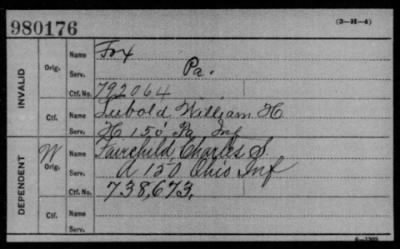 980176
(3—H—4)
INVALID
Orig.
Name Fox
Serv. Pa.
Ctf. No. 792064
Ctf.
Name Leibold, William H
Serv. H 150 Pa Inf
DEPENDENT
W Orig.
Name Fairchild, Charles S.
Serv. A 150 Ohio Inf
Ctf. No. 738,673,
Ctf.
Name
Serv.